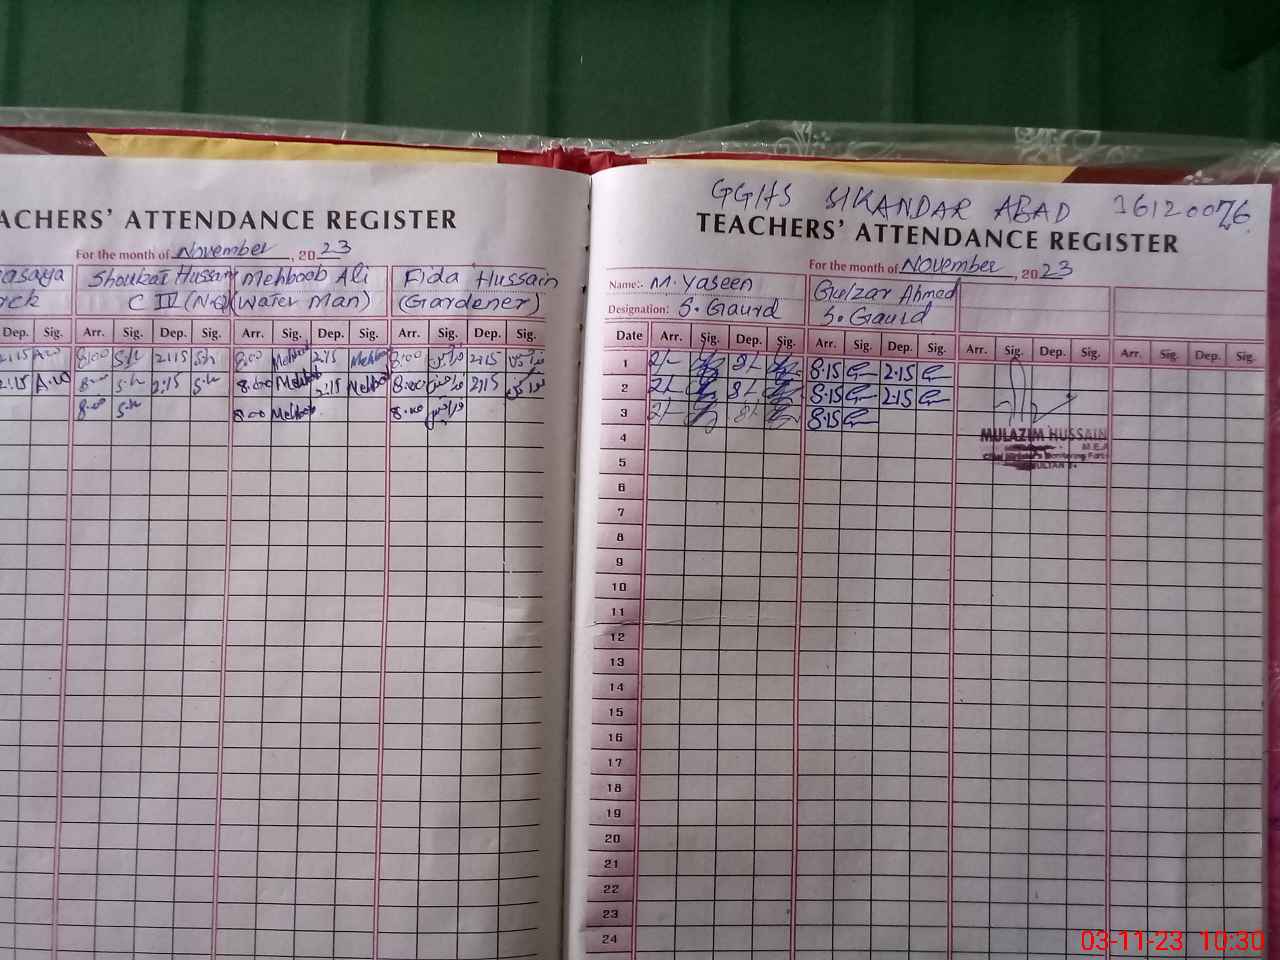 ACHERS' ATTENDANCE REGISTER
For the month of November, 2023
asaya Shoukat Hussain Mehboob Ali Fida Hussain
C IV (N.Q) (Water Man) (Gardener)
Dep. Sig. Arr. Sig. Dep. Sig. Arr. Sig. Dep. Sig. Arr. Sig. Dep. Sig.
2:15 8:00 S.h 2:15 S.h 8:00 Mehboob 2:15 Mehboob 8:00 2:15
2:15 8:00 S.h 2:15 S.h 8:00 Mehboob 2:15 Mehboob 8:00 2:15
8:00 S.h 8:00 Mehboob 8:00
GGHS SIKANDAR ABAD 36120076
TEACHERS' ATTENDANCE REGISTER
For the month of November, 2023
Name:- M. Yaseen Gulzar Ahmed
Designation: S. Gaurd S. Gaurd
Date Arr. Sig. Dep. Sig. Arr. Sig. Dep. Sig. Arr. Sig. Dep. Sig. Arr. Sig. Dep. Sig.
1 2/- 8/- 8:15 2:15
2 2/- 8/- 8:15 2:15
3 2/- 8/- 8:15
4
MULAZIM HUSSAIN
M.E.A
5
6
7
8
9
10
11
12
13
14
15
16
17
18
19
20
21
22
23
24
03-11-23 10:30